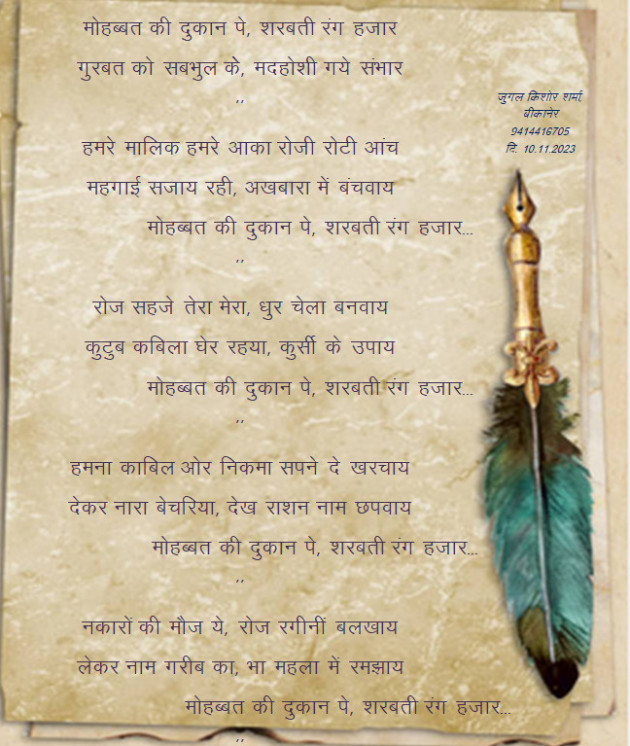 मोहब्बत की दुकान पे, शरबती रंग हजार
गुरबत को सबभुल के, मदहोशी गये संभार
,,
जुगल किशोर शर्मा,
बीकानेर
9414416705
दि. 10.11.2023
हमरे मालिक हमरे आका रोजी रोटी आंच
महगाई सजाय रही, अखबारा में बंचवाय
मोहब्बत की दुकान पे, शरबती रंग हजार...
,,
रोज सहजे तेरा मेरा, धुर चेला बनवाय
कुटुब कबिला घेर रहया, कुर्सी के उपाय
मोहब्बत की दुकान पे, शरबती रंग हजार...
,,
हमना काबिल ओर निकमा सपने दे खरचाय
देकर नारा बेचरिया, देख राशन नाम छपवाय
मोहब्बत की दुकान पे, शरबती रंग हजार...
,,
नकारों की मौज ये, रोज रगीनीं बलखाय
लेकर नाम गरीब का, भा महला में रमझाय
मोहब्बत की दुकान पे, शरबती रंग हजार...
,,